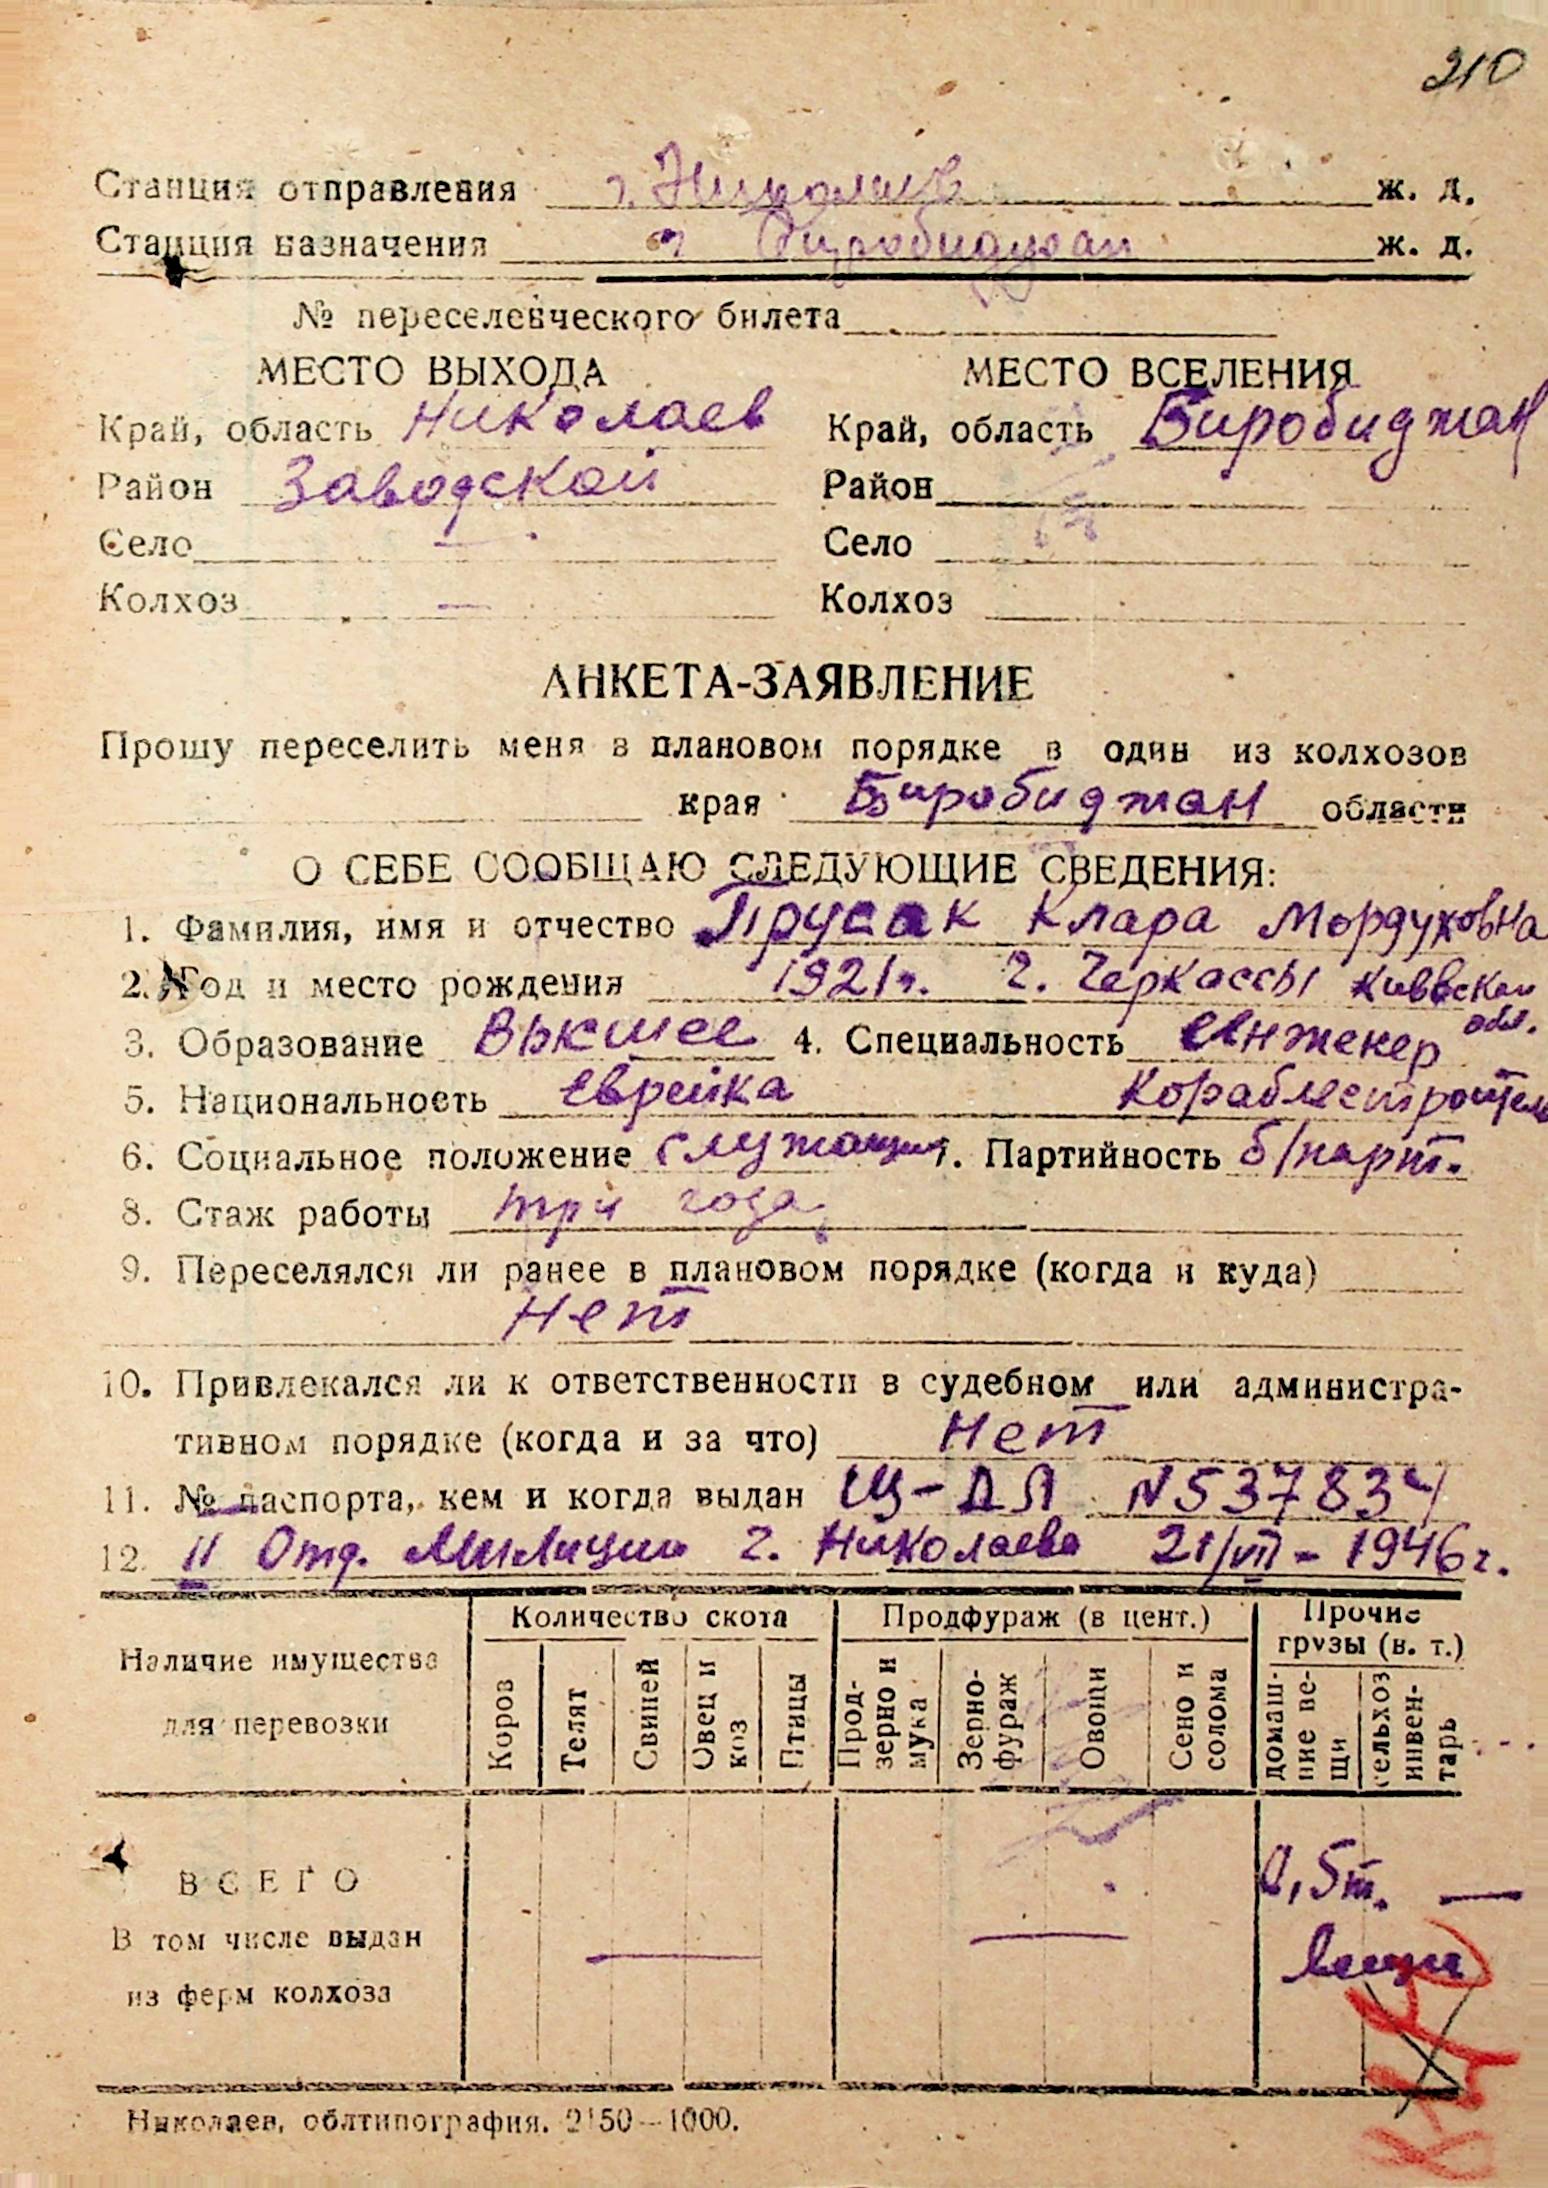 210
Станция отправления г. Николаев ж. д.
Станция назначения г. Биробиджан ж. д.
№ переселенческого билета
МЕСТО ВЫХОДА
Край, область Николаев
Район Заводской
Село —
Колхоз —
МЕСТО ВСЕЛЕНИЯ
Край, область Биробиджан
Район
Село
Колхоз
АНКЕТА-ЗАЯВЛЕНИЕ
Прошу переселить меня в плановом порядке в один из колхозов
края Биробиджан области
О СЕБЕ СООБЩАЮ СЛЕДУЮЩИЕ СВЕДЕНИЯ:
1. Фамилия, имя и отчество Прусак Клара Мордуховна
2. Год и место рождения 1921 г. г. Черкассы Киевской обл.
3. Образование Высшее 4. Специальность Инженер
5. Национальность еврейка Кораблестроитель
6. Социальное положение служащий 7. Партийность б/парт.
8. Стаж работы три года
9. Переселялся ли ранее в плановом порядке (когда и куда)
Нет
10. Привлекался ли к ответственности в судебном или администра-
тивном порядке (когда и за что) Нет
11. № паспорта, кем и когда выдан N 537834
12. II Отд. Милиции г. Николаева 21/VII - 1946 г.
Наличие имущества
для перевозки
Количество скота
Коров
Телят
Свиней
Овец и
коз
Птицы
Продфураж (в цент.)
Прод-
зерно и
мука
Зерно-
фураж
Овощи
Сено и
солома
Прочие
грузы (в. т.)
домаш-
ние ве-
щи
сельхоз
инвен-
тарь
ВСЕГО
В том числе выдан
из ферм колхоза
— —
0,5т. —
вещи
Николаев, облтипография. 2150—1000.